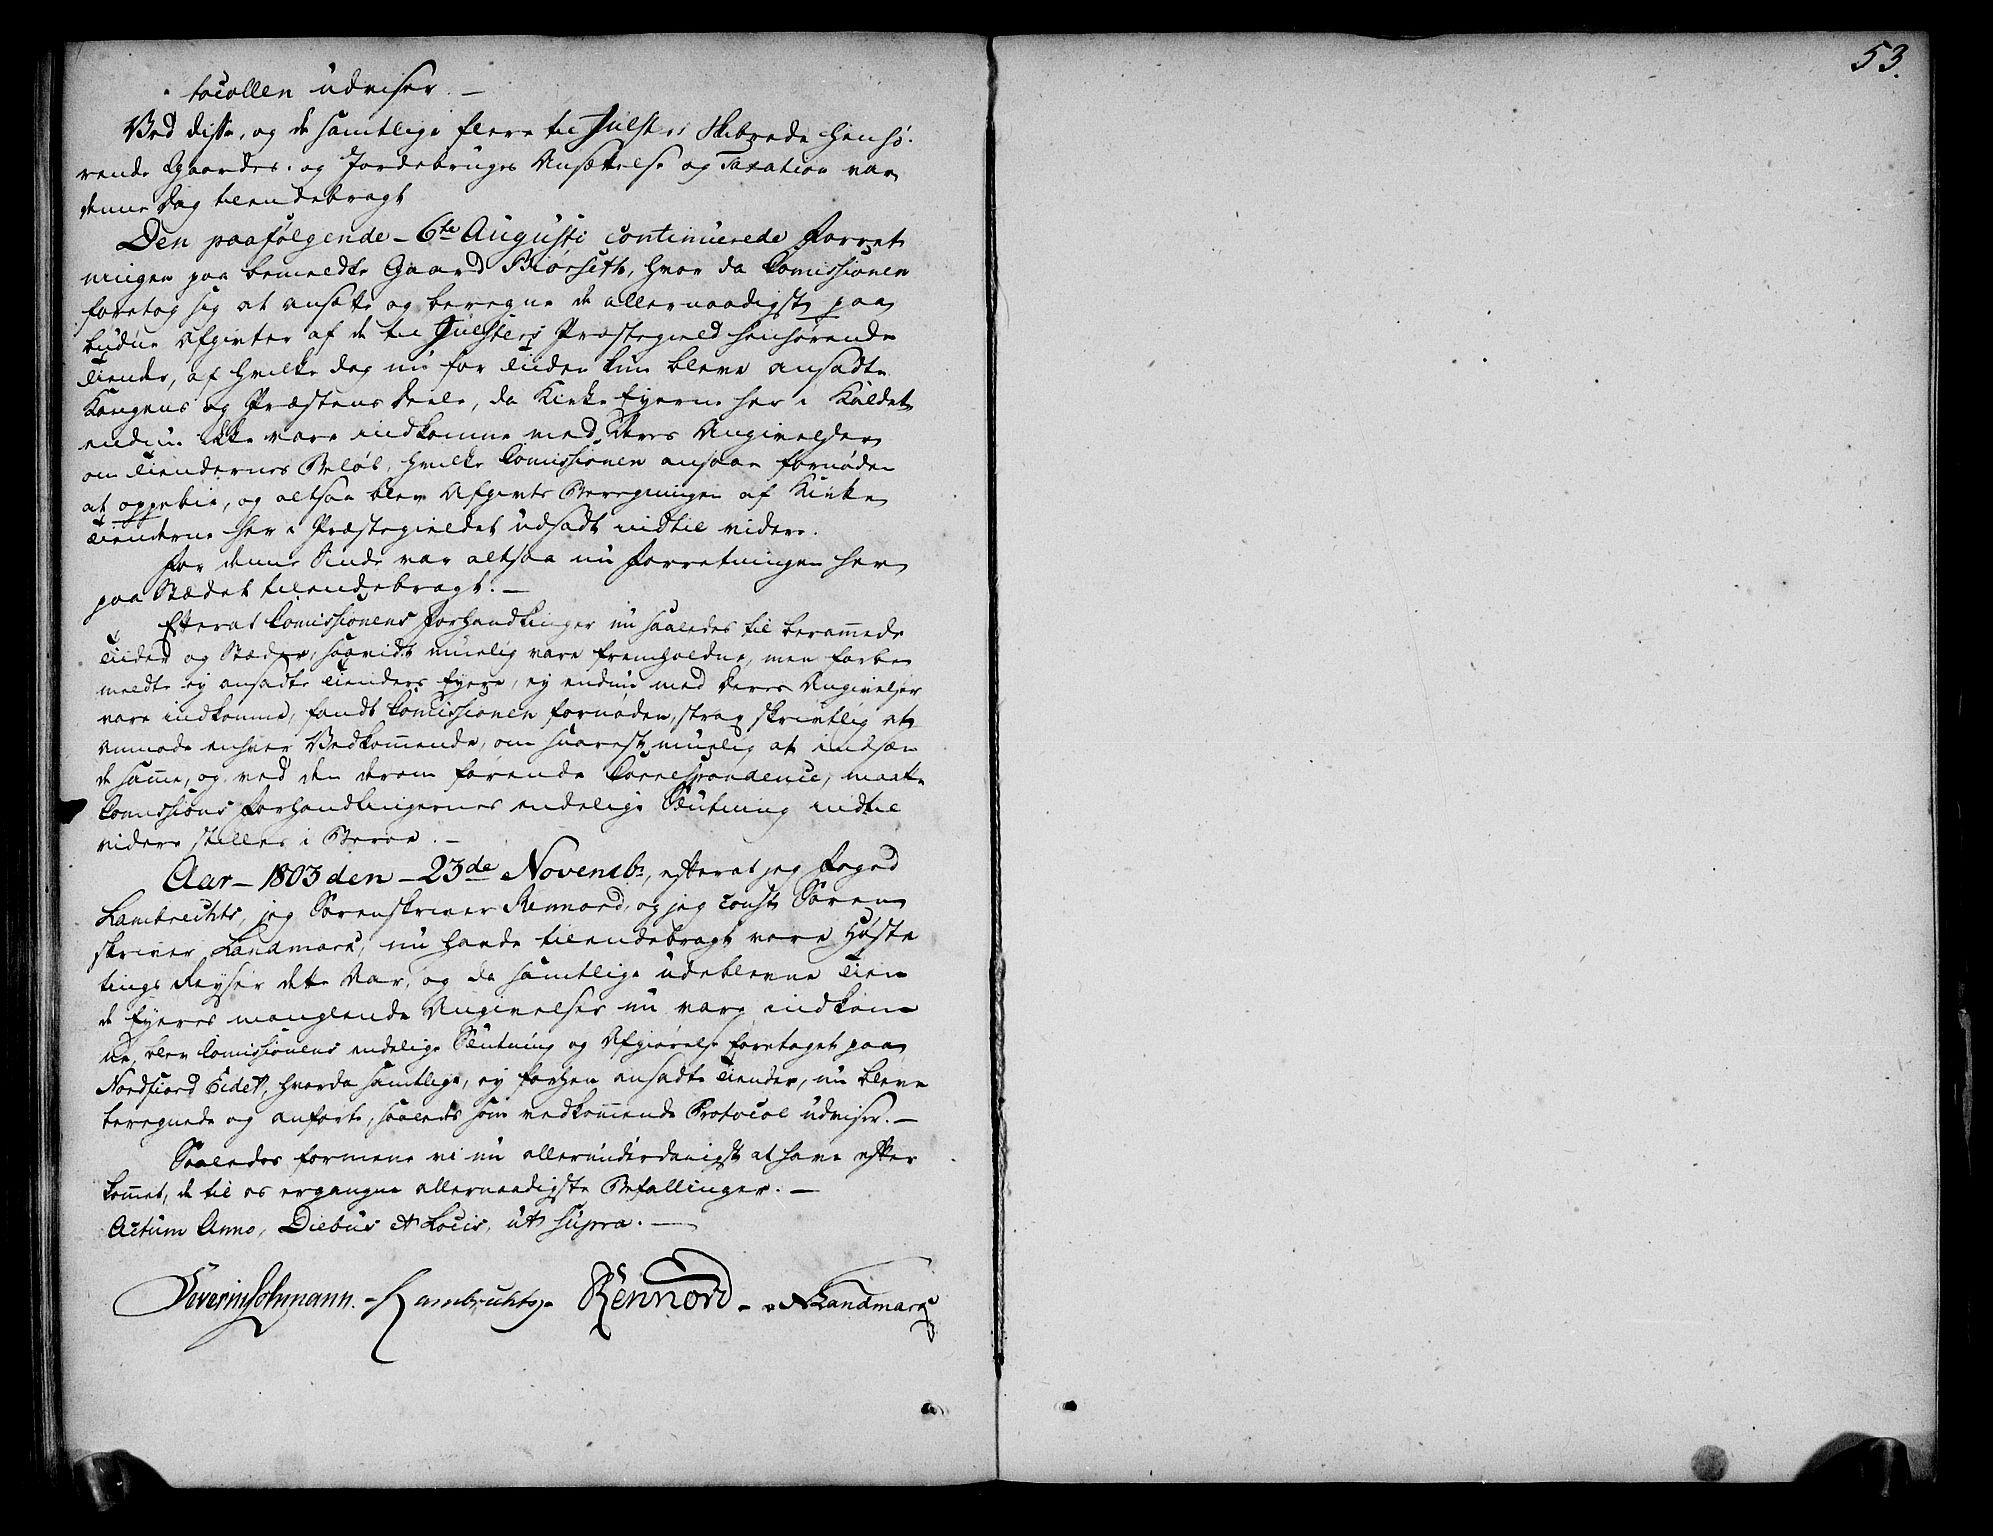 tocollen udviser. —
Ved disse, og de samtlige flere til Julsters Skibrede henhø-
rende Gaardes- og Jordebruges Ansættelse og Taxation var
denne Dag tilendebragt
Den paafølgende - 6te Augusti continuerede Forret
ningen paa bemeldte Gaard Biørseth, hvor da Comissionen
foretog sig at ansætte og beregne de allernaadigst paa
budne Afgivter af de til Julsters Præstegield henhørende
Tiender, af hvilke dog nu for Tiden kun bleve ansadte
Kongens og Præstens Deele, da Kirke Eyerne her i Kaldet
endnu ikke vare indkomne med deres Angivelser
om Tiendernes Beløb, hvilke Comissionen ansaae fornøden
at oppebie, og altsaa blev Afgivts Beregningen af Kirke
Tienderne her i Præstegieldet udsadt indtil videre.
For denne Sinde var altsaa nu Forretningen her
paa Stædet tilendebragt. —
Efterat Comissionens Forhandlinger nu saaledes til beramede
Tider og Stæder, saavidt muelig vare fremholdne, men forbe
meldte ey ansadte Tienders Eyere, ey endnu med deres Angivelser
vare indkomne, fandt Comissionen fornøden, strax skrivtlig at
anmode enhver Vedkomende, om snarest muelig at indsæn
de samme, og ved den derom førende Correspondence, maatte
Comissions Forhandlingernes endelige Slutning indtil
videre stilles i Beroe. —
Aar - 1803 den - 23de Novembr, efterat jeg Foged
Lambrechts, jeg Sorenskriver Rennord, og jeg const Soren
skriver Landmark, nu havde tilendebragt vore Høste
tings Reyser dette Aar, og de samtlige udeblevne Tien
de Eyeres manglende Angivelser nu vare indkom
ne, blev Comissionens endelige Slutning og Afgiørelse foretaget paa
Nordfiord Eidet, hvorda samtlige, ey forhen ansadte Tiender, nu bleve
beregnede og anførte, saaledes som vedkomende Protocol udviser. —
Saaledes formene vi nu allerunderdanigst at have efter
kommet, de til os ergangne allernaadigste Befallinger. —
Actum Anno, Diebus et Locis, ut supra. —
Severin Lohmann. - Lambrechts - Rennord - NLandmark
53.